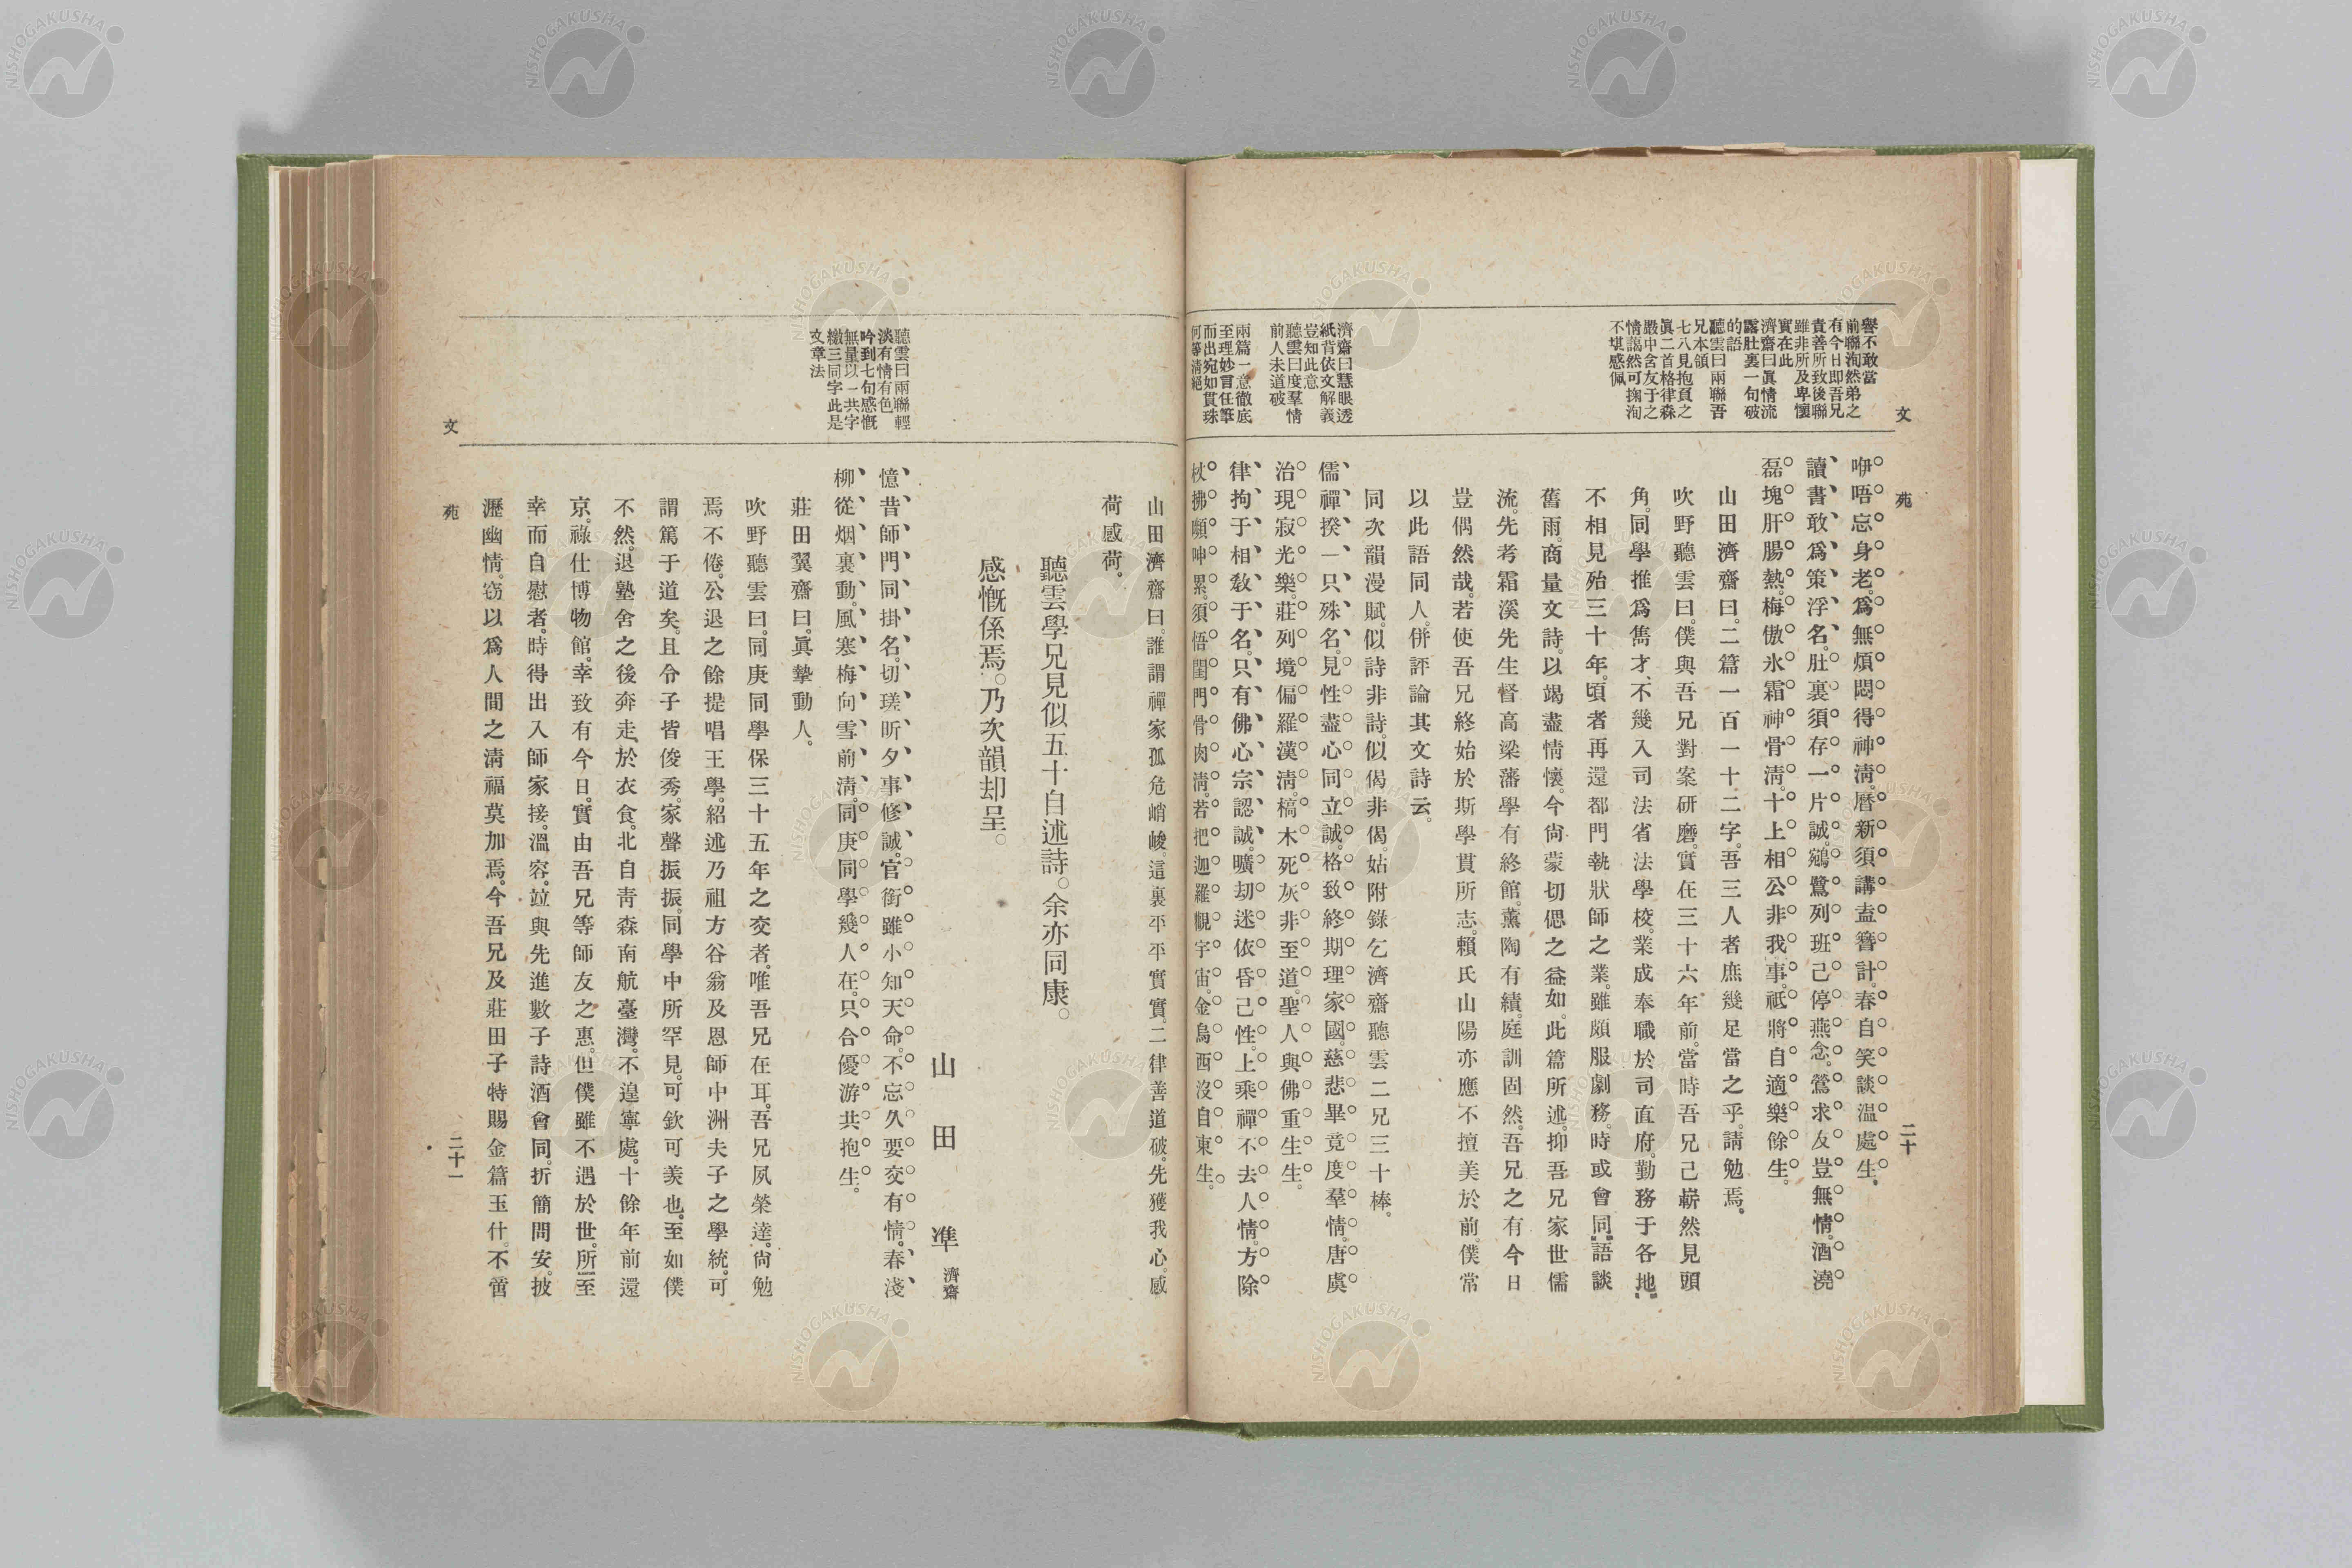 文
苑
二十
譽不敢當
前聯洵然弟之
有今日即吾兄
責善所致後聯
雖非所及卑懷
實在此
濟齋曰眞情流
露肚裏一句破
的語
聽雲曰兩聯吾
兄本領
七八見抱負之
眞二首格律森
嚴中含友于之
情藹然可掬洵
不堪感佩
濟齋曰慧眼透
紙背依文解義
豈知此意
聽雲曰度羣情
前人未道破
兩篇一意徹底
至理妙冐任筆
而出宛如貫珠
何等淸絕
咿唔忘身老。爲無煩悶得神淸。曆新須講盍簪計。春自笑談溫處生。
讀書敢爲策浮名。肚裏須存一片誠。鵷鷺列班己停燕念。鶯求友豈無情。酒澆
磊塊肝腸熱。梅傲氷霜神骨淸。十上相公非我事。祗將自適樂餘生。
山田濟齋曰。二篇一百一十二字。吾三人者庶幾足當之乎。請勉焉。
吹野聽雲曰。僕與吾兄對案硏磨。實在三十六年前。當時吾兄己嶄然見頭
角。同學推爲雋才、不幾入司法省法學校。業成奉職於司直府。勤務于各地。
不相見殆三十年。頃者再還都門執狀師之業。雖頗服劇務。時或會同。語談
舊雨。商量文詩。以竭盡情懷。今尙蒙切偲之益如。此篇所述。抑吾兄家世儒
流。先考霜溪先生督高梁藩學有終館。薰陶有績。庭訓固然。吾兄之有今日
豈偶然哉。若使吾兄終始於斯學貫所志。賴氏山陽亦應不擅美於前。僕常
以此語同人。倂評論其文詩云。
同次韻漫賦。似詩非詩。似偈非偈。姑附錄乞濟齋聽雲二兄三十棒。
儒禪揆一只殊名。見性盡心同立誠。格致終期理家國。慈悲畢竟度羣情。唐虞
治現寂光樂。莊列境偏羅漢淸。槁木死灰非至道。聖人與佛重生生。
律拘于相敎于名。只有佛心宗認誠。曠刧迷依昏己性。上乘禪不去人情。方除
杖拂嚬呻累。須悟閨門骨肉淸。若把迦羅觀宇宙。金烏西沒自東生。
山田濟齋曰。誰謂禪家孤危峭峻。這裏平平實實。二律善道破。先獲我心。感
荷感荷。
聽雲學兄見似五十自述詩。余亦同康。
感慨係焉。乃次韻却呈。
山田準 濟齋
憶昔師門同掛名。切瑳昕夕事修誠。官銜雖小知天命。不忘久要交有情。春淺
柳從烟裏動。風寒梅向雪前淸。同庚同學幾人在。只合優游共抱生。
莊田翼齋曰。眞摯動人。
吹野聽雲曰。同庚同學保三十五年之交者。唯吾兄在耳。吾兄夙榮達。尙勉
焉不倦。公退之餘提唱王學。紹述乃祖方谷翁及恩師中洲夫子之學統。可
謂篤于道矣。且令子皆俊秀。家聲振振。同學中所罕見。可欽可羨也。至如僕
不然。退塾舍之後奔走於衣食。北自靑森南航臺灣。不遑寧處。十餘年前還
京。祿仕博物館。幸致有今日。實由吾兄等師友之惠。但僕雖不遇於世。所至
幸而自慰者。時得出入師家接溫容。竝與先進數子詩酒會同。折簡問安。披
瀝幽情。窃以爲人間之淸福莫加焉。今吾兄及莊田子特賜金篇玉什。不啻
聽雲曰兩聯輕
淡有情有色
吟到七句感慨
無量以一共字
繳三同字此是
文章法
文
苑
二十一
NISHOGAKUSHA